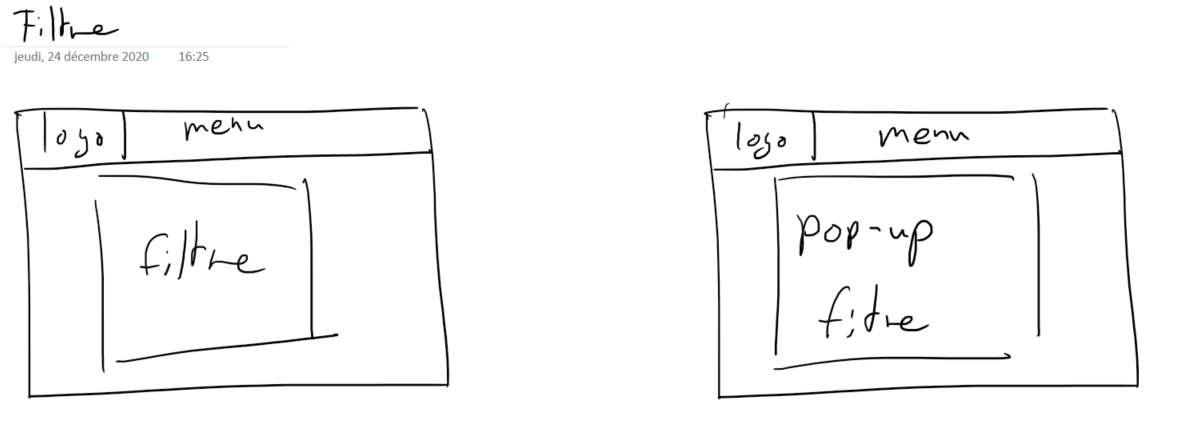 Filtre
jeudi, 24 décembre 2020 16:25
logo menu
filtre
logo menu
pop-up
filtre